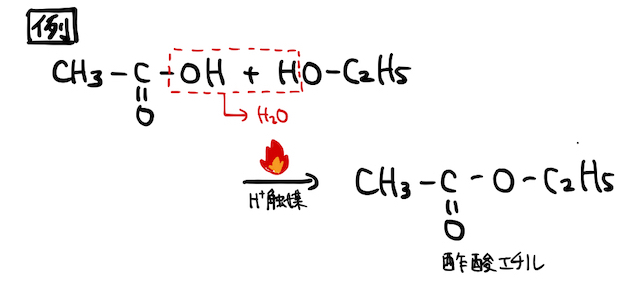 例
CH3-C-OH + HO-C2H5
=
O
→ H2O
H+触媒
CH3-C-O-C2H5
=
O
酢酸エチル